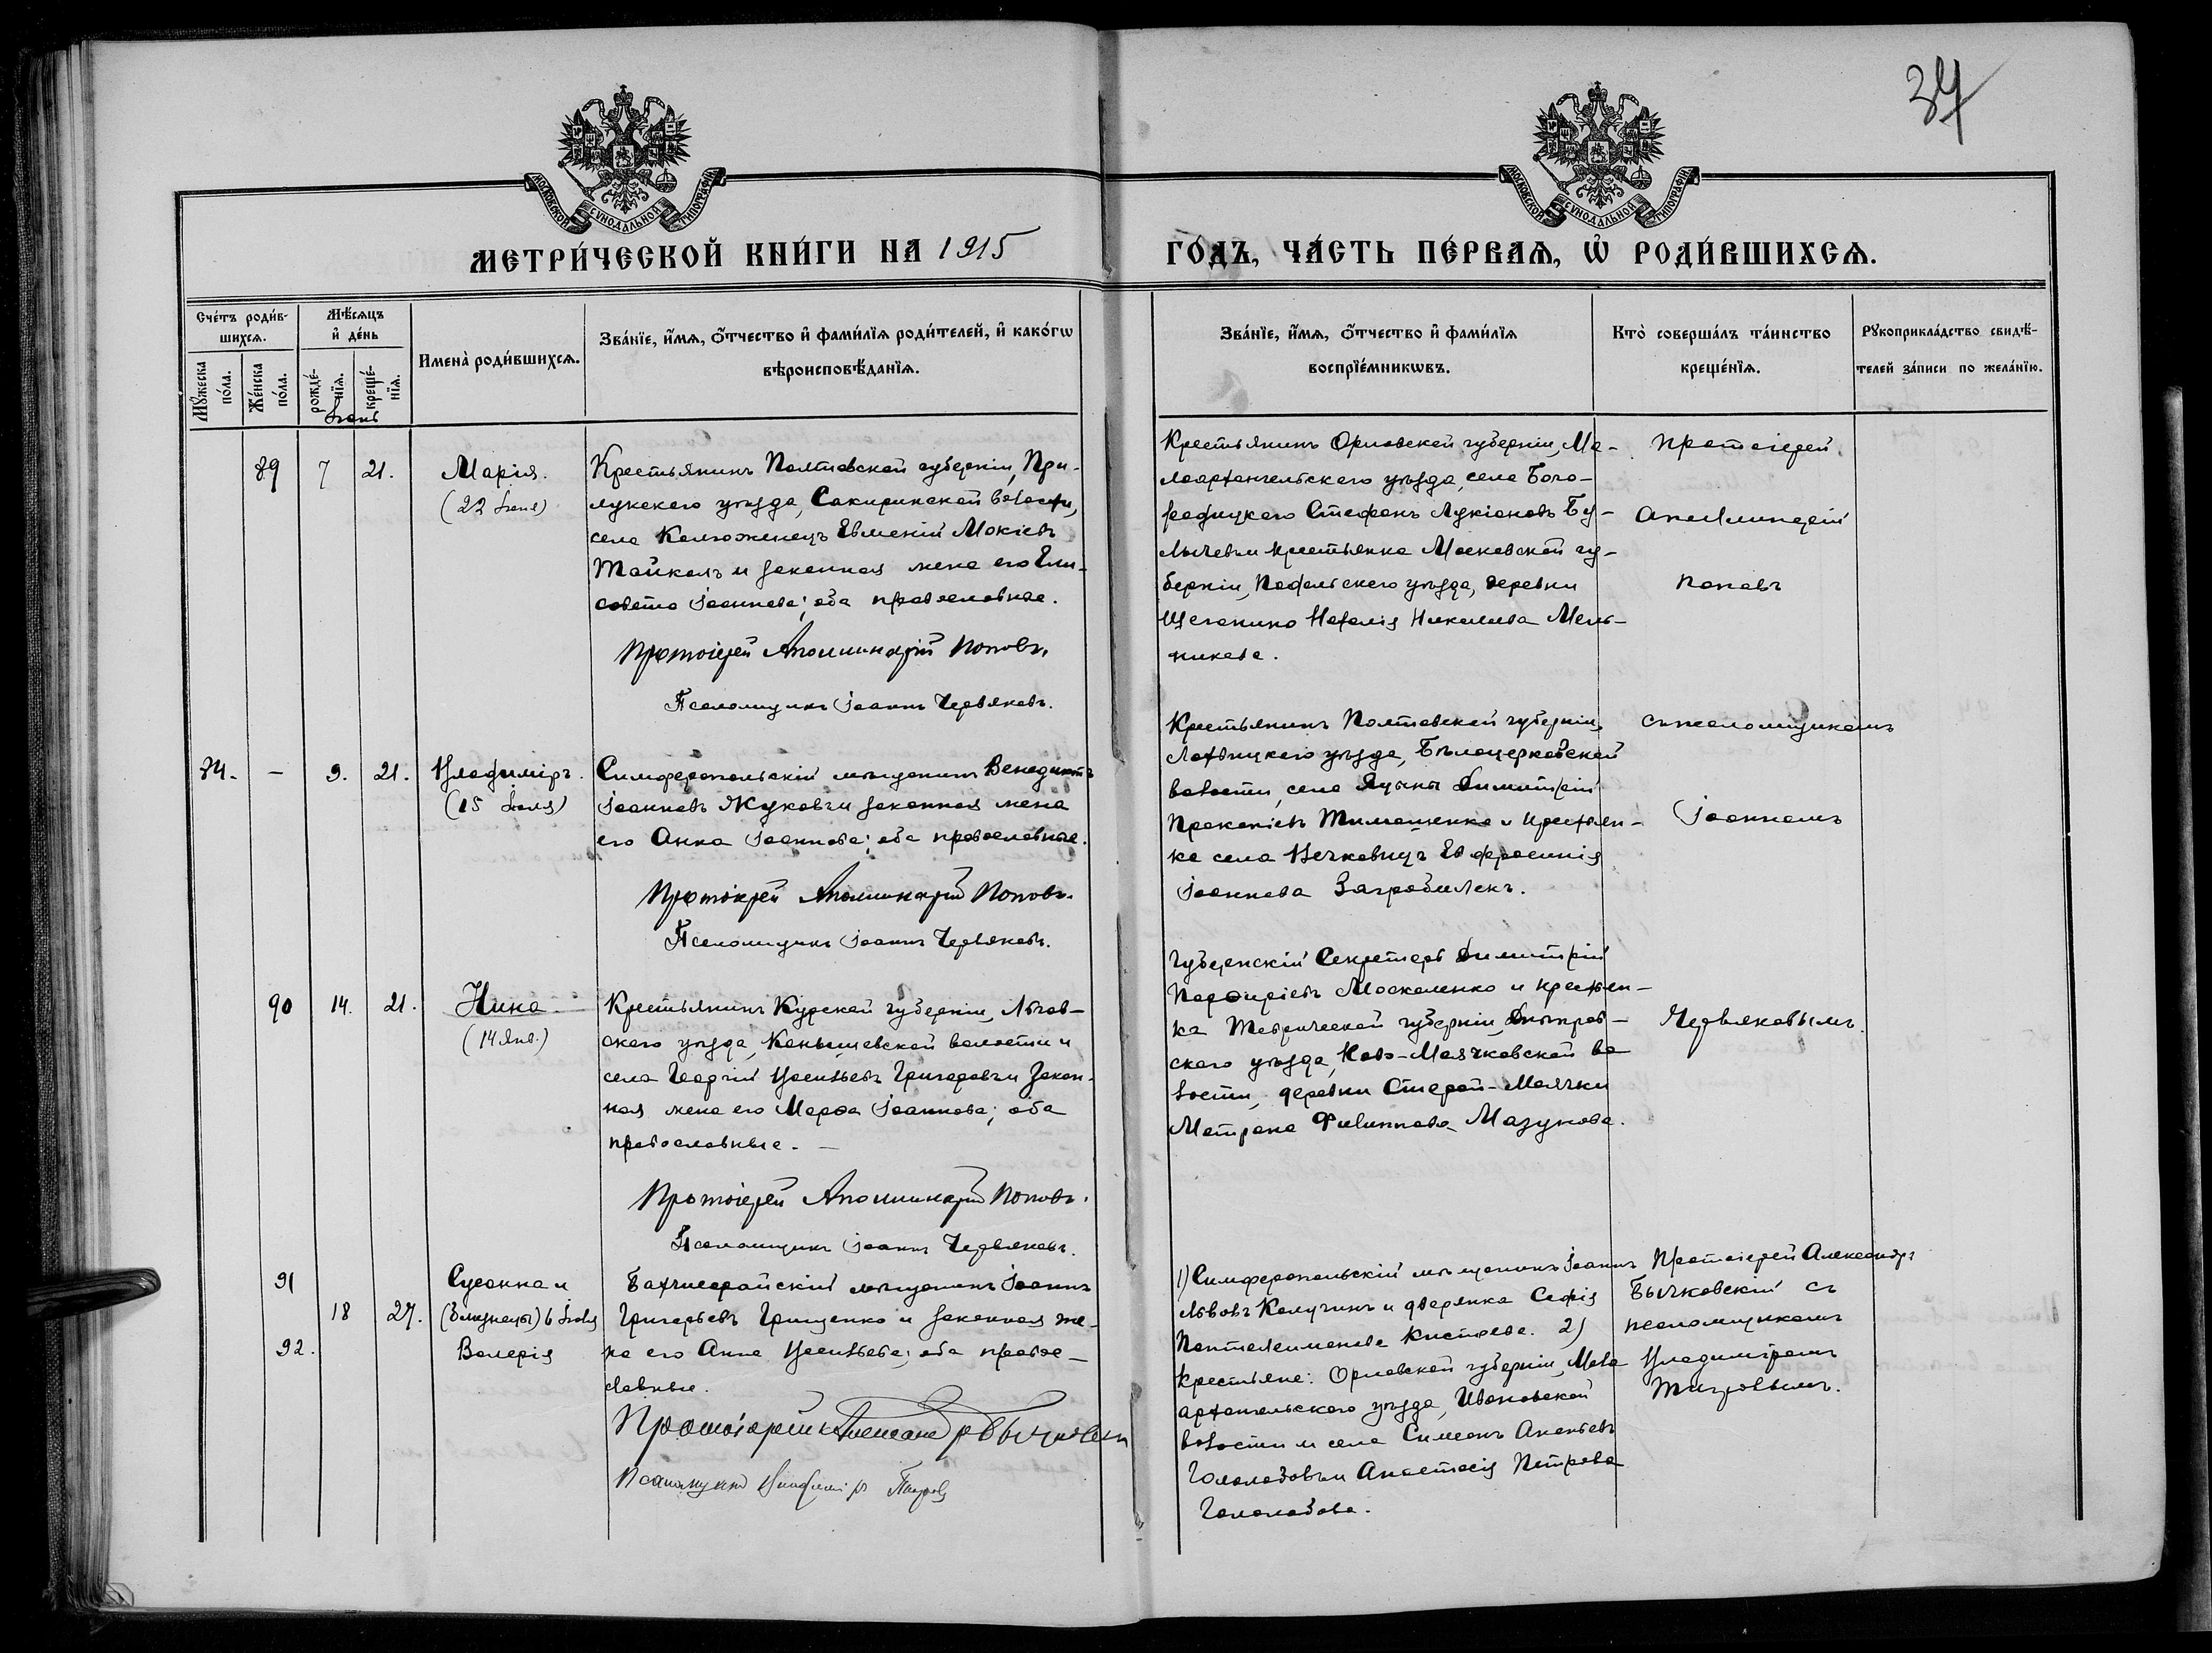 34
МОСКОВСКОЙ СѴНОДАЛЬНОЙ ТИПОГРАФІИ
МОСКОВСКОЙ СѴНОДАЛЬНОЙ ТИПОГРАФІИ
МЕТРИ́ЧЕСКОЙ КНИ́ГИ НА 1915
ГО́ДЪ, ЧА́СТЬ ПЕ́РВАѦ, Ѽ РОДИ́ВШИХСѦ.
Сче́тъ роди́в-
шихсѧ.
Мꙋ́жеска по́ла.
Же́нска по́ла.
Мѣ́сѧцъ
и҆ де́нь
рожде́-
нїѧ.
креще́-
нїѧ.
Имена̀ роди́вшихсѧ.
Зва́нїе, и҆́мѧ, ѻ҆́тчество и҆ фами́лїѧ роди́телей, и҆ како́гѡ
вѣроисповѣ́данїѧ.
Зва́нїе, и҆́мѧ, ѻ҆́тчество и҆ фами́лїѧ
воспрїе́мникѡвъ.
Кто̀ соверша́лъ та́инство
креще́нїѧ.
Рꙋкоприкла́дство свидѣ́-
телей за́писи по жела́нїю.
Іюнь
89 7 21. Марія.
(22 Іюля)
Крестьянинъ Полтавской губерніи, При-
лукскаго уѣзда, Сокиринской волости,
села Калюженецъ Евменій Мокіевъ
и законная жена его Ели-
савета Іоаннова; оба православные.
Протоіерей Аполлинарій Поповъ.
Псаломщикъ Іоаннъ Червяковъ.
Крестьянинъ Орловской губерніи, Ма-
лоархангельскаго уѣзда, села Бого-
родицкаго Стефанъ Лукіановъ Бу-
лычевъ и крестьянка Московской гу-
берніи, Подольскаго уѣзда, деревни
Щеголино Наталія Николаева Мель-
никова.
Протоіерей
Аполлинарій
Поповъ
84. – 9. 21. Владиміръ.
(15 Іюля)
Симферопольскій мѣщанинъ Венедиктъ
Іоанновъ Жуковъ и законная жена
его Анна Іоаннова; оба православные.
Протоіерей Аполлинарій Поповъ.
Псаломщикъ Іоаннъ Червяковъ.
Крестьянинъ Полтавской губерніи,
Лохвицкаго уѣзда, Бѣлоцерковской
волости, села Яцыны Димитрій
Прокопіевъ Тимошенко и крестьян-
ка села Вечковицъ Евфросинія
Іоаннова
съ псаломщикомъ
Іоанномъ
90 14. 21. Нина
(14 Янв.)
Крестьянинъ Курской губерніи, Льгов-
скаго уѣзда, Конышевской волости и
села Георгій Васильевъ Григоровъ и закон-
ная жена его Марѳа Іоаннова; оба
православные. –
Протоіерей Аполлинарій Поповъ.
Псаломщикъ Іоаннъ Червяковъ.
Губернскій Секретарь Димитрій
Порфиріевъ Москаленко и крестьян-
ка Таврической губерніи, Днѣпров-
скаго уѣзда, Ново-Маячковской во
лости, деревни Старой-Маячки
Матрона Филиппова Мазукова.
Червяковымъ.
91
92.
18 27.
Сусанна и
(близнецы) 6 Іюля
Валерія
Бахчисарайскій мѣщанинъ Іоаннъ
Григорьевъ Грищенко и законная же-
на его Анна Васильева; оба правос-
лавные.
Протоіерей Александръ Бычковскій
Псаломщикъ Владиміръ
1) Симферопольскій мѣщанинъ Іоаннъ
Львовъ Калугинъ и дворянка Софія
Пантелеимонова 2)
крестьяне: Орловской губерніи, Мало
архангельскаго уѣзда, Ивановской
волости и села Симеонъ Ананьевъ
Гололобовъ и Анастасія Петрова
Гололобова.
Протоіерей Александръ
Бычковскій съ
псаломщикомъ
Владиміромъ